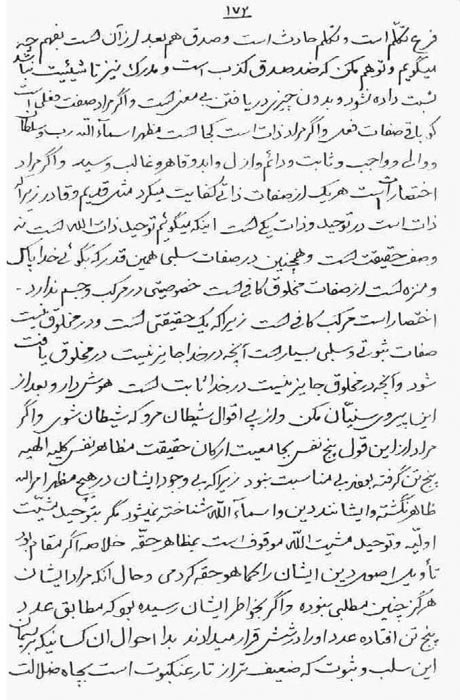 ۱۷۲
فرع تکلّم است و تکلم حادث است و صدق هم بعد از آن است بفهم چه
میگویم و توهم مکن که ضد صدق کذب است و مدرک نیز تا شیئیت نباشد
نسبت داده نشود و بدون چیزی دریافتن بی معنی است و اگر مراد صفت فعلی است
کو باقی صفات فعلی و اگر مراد ذات است کجا است مظهر اسماء الله رب و سلطان
و والی و واجب و ثابت و دائم و ازل و ابد و قاهر و غالب و سید و اگر مراد
اختصار است هر یک از صفات ذاتی کفایت میکرد مثل قدیم و قادر زیرا که
ذات است در توحید و ذات یکی است اینکه میگوئیم توحید ذات الله است نه
وصف حقیقت است و همچنین در صفات سلبی همین قدر که بگوئی خدا پاک
و منزه است از صفات مخلوق کافی است خصوصیتی در مرکب و جسم ندارد .
اختصار است مرکب کافی است زیرا که یک حقیقتی است و در مخلوق نیست
صفات ثبوتی و سلبی بسیار است آنچه در خدا جایز نیست در مخلوق یافت
شود و آنچه در مخلوق جایز نیست در خدا ثابت است هوش دار و بعد از
این پیروی سنیان مکن و از پی اقوال شیطان مرو که شیطان شوی و اگر
مراد از این قول پنج نفس بجامعیت ارکان حقیقت مظاهر نفس کلیه الهیه
پنج تن گرفته بود بی مناسبت نبود زیرا که بی وجود ایشان در هیچ مظهر امر الله
ظاهر نگشته و ایشانند دین و اسماء الله شناخته نمیشود مگر بتوحید مشیّت
اولیّه و توحید مشیت الله موقوف است بمظاهر حقّه خلاصه اگر مقام بود
تأویل اصول دین ایشان را کما هو حقه کردمی و حال آنکه مراد ایشان
هرگز چنین مطلبی نبوده و اگر بخواطر ایشان رسیده بود که مطابق عدد
پنج تن افتاده عدد او را در شش قرار میدادند بدا احوال آن کسانیکه بریسمان
این سلب و ثبوت که ضعیف تر از تار عنکبوت است بچاه ضلالت